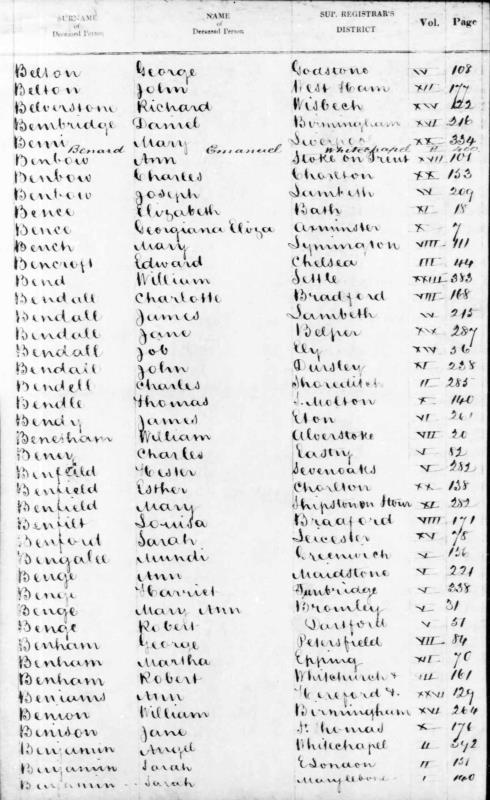 SURNAME of Deceased Person NAME of Deceased Person SUP. REGISTRAR'S DISTRICT Vol. Page
Belton George Godstone IV 108
Belton John West Ham XII 177
Belverstone Richard Wisbech XIV 122
Bembridge Daniel Birmingham XVI 216
Bemi Mary Liverpool XX 334
Benard Emanuel Whitechapel II 400
Benbow Ann Stoke on Trent XVII 101
Benbow Charles Chorlton XX 153
Benbow Joseph Lambeth IV 209
Bence Elizabeth Bath XI 18
Bence Georgiana Eliza Axminster X 7
Bench Mary Lymington VIII 111
Bencroft Edward Chelsea III 44
Bend William Settle XXIII 383
Bendall Charlotte Bradford VIII 168
Bendall James Lambeth IV 215
Bendall Jane Belper XIX 287
Bendall Job Ely XIV 56
Bendall John Dursley XI 238
Bendell Charles Shoreditch II 285
Bendle Thomas S. Molton X 140
Bendy James Eton VI 261
Benesham William Alverstoke VII 20
Beney Charles Eastry V 82
Benfield Hester Sevenoaks V 282
Benfield Esther Chorlton XX 138
Benfield Mary Shipston on Stour XI 282
Benfilt Louisa Bradford VIII 171
Benford Sarah Leicester XV 78
Bengalee Mundi Greenwich V 136
Benge Ann Maidstone V 221
Benge Harriet Tunbridge V 338
Benge Mary Ann Bromley V 31
Benge Robert Dartford V 51
Benham George Petersfield VII 84
Benham Martha Epping XII 70
Benham Robert Whitchurch 161
Beniams Ann Hereford XXVI 129
Benion William Birmingham XVI 264
Benison Jane St. Thomas X 176
Benjamin Angel Whitechapel II 392
Benjamin Sarah E London II 131
Benjamin Sarah Marylebone I 140